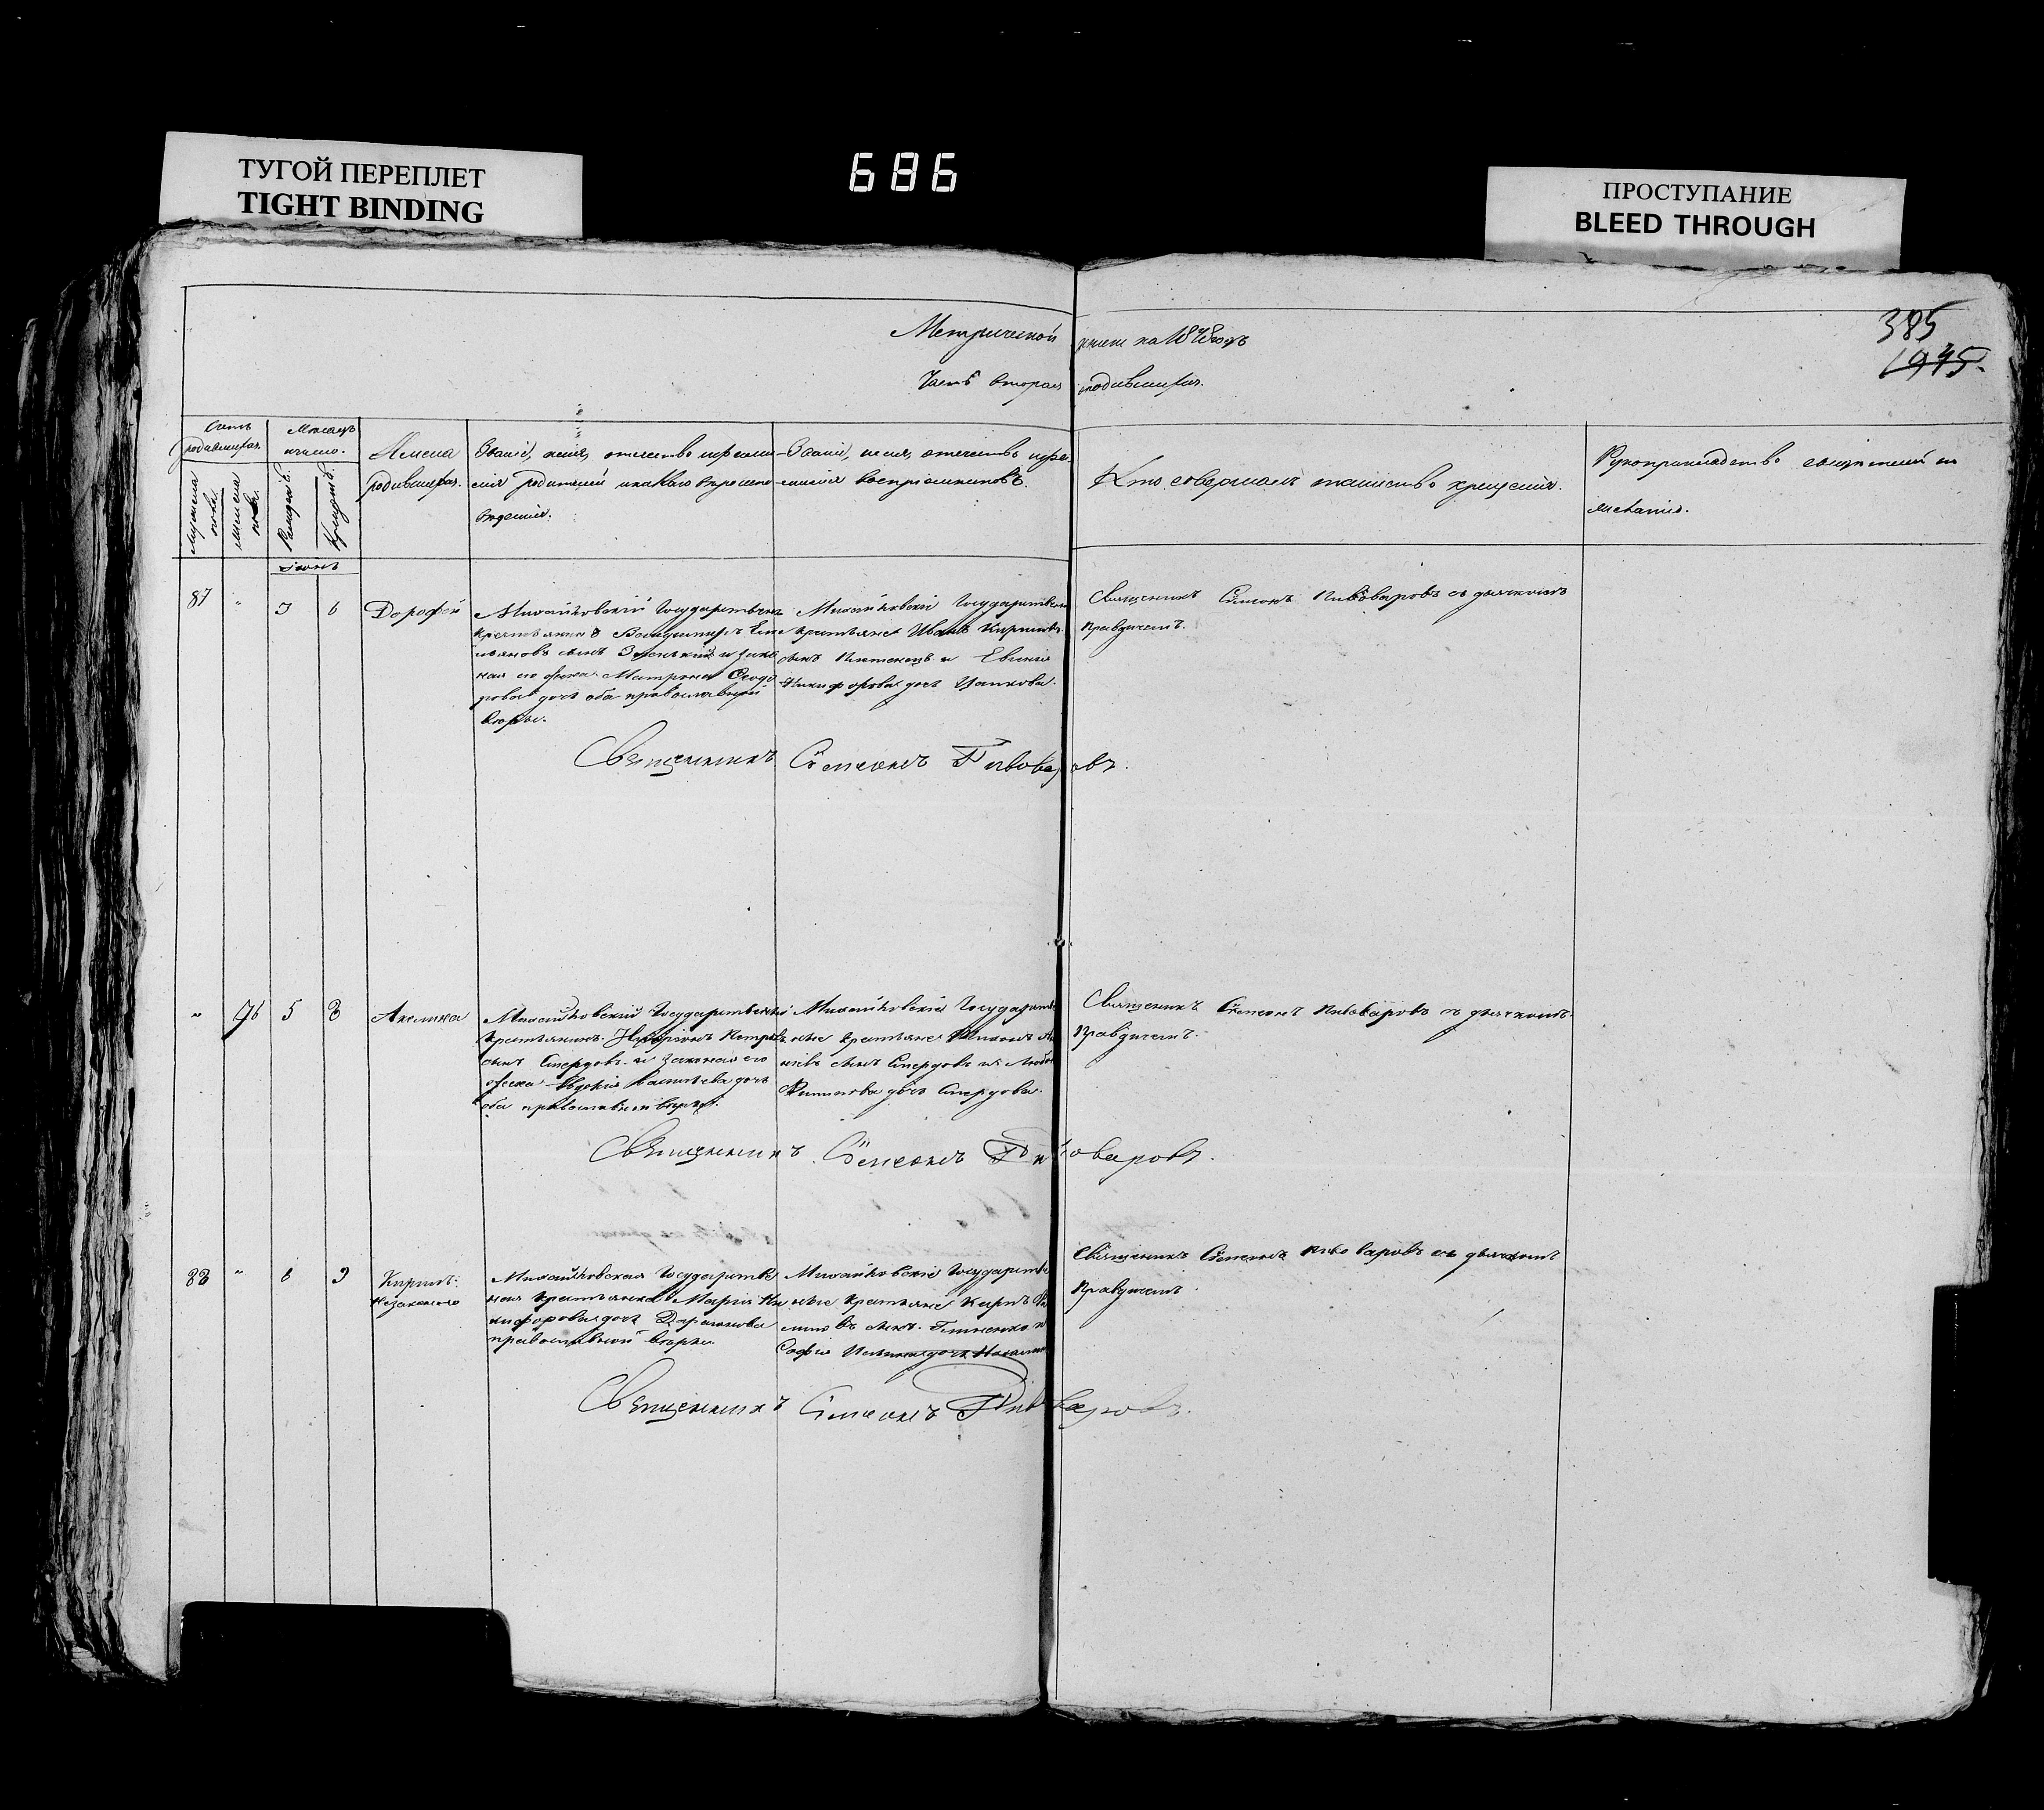 ТУГОЙ ПЕРЕПЛЕТ
TIGHT BINDING
686
ПРОСТУПАНИЕ
BLEED THROUGH
385
1945.
Метрической книги на 1848 годъ
Часть вторая родившихся.
Счетъ родившихся.
Мужеска пола.
Женска пола.
Месяцъ и число.
Рожденія.
Крещенія.
Имена
родившихся.
Званіе, имя, отечество и фами-
лія родителей и какого вероиспо-
веденія.
Званіе, имя, отечество и фа-
милія воспріемниковъ.
Кто совершалъ таинство крещенія.
Рукоприкладство свидетелей по
желанію.
87 " 6 Дорофей
Михайловскій Государствен
крестьянинъ Владимиръ Еме
льяновъ сынъ и закон
ная его жена Матрона Феодо
рова дочь оба православной
веры.
Михайловскіе Государствен
крестьяне Иванъ Кирилловъ
сынъ и Евгенія
Никифорова дочь
Священникъ Симеонъ Пивоваровъ съ дьячкомъ
Правдичемъ.
Священникъ Симеонъ Пивоваровъ.
" 76 5 8 Акелина
Михайловскій Государственный
крестьянинъ Петровъ
сынъ Смердовъ и законная его
жена Евдокія Васильева дочь
оба православной веры.
Михайловскіе Государствен
ные крестьяне
сынъ Смердовъ и Любовь
Филипова дочь Смердова.
Священникъ Симеонъ Пивоваровъ съ дьячкомъ
Правдичемъ.
Священникъ Симеонъ Пивоваровъ.
88 " 6 9 Кириллъ
Незаконно
Михайловская Государствен
ная крестьянка Марія Ни
кифорова дочь
православной веры.
Михайловскіе Государствен
ные крестьяне Карпъ
сынъ и
Софія дочь
Священникъ Симеонъ Пивоваровъ съ дьячкомъ
Правдичемъ.
Священникъ Симеонъ Пивоваровъ.